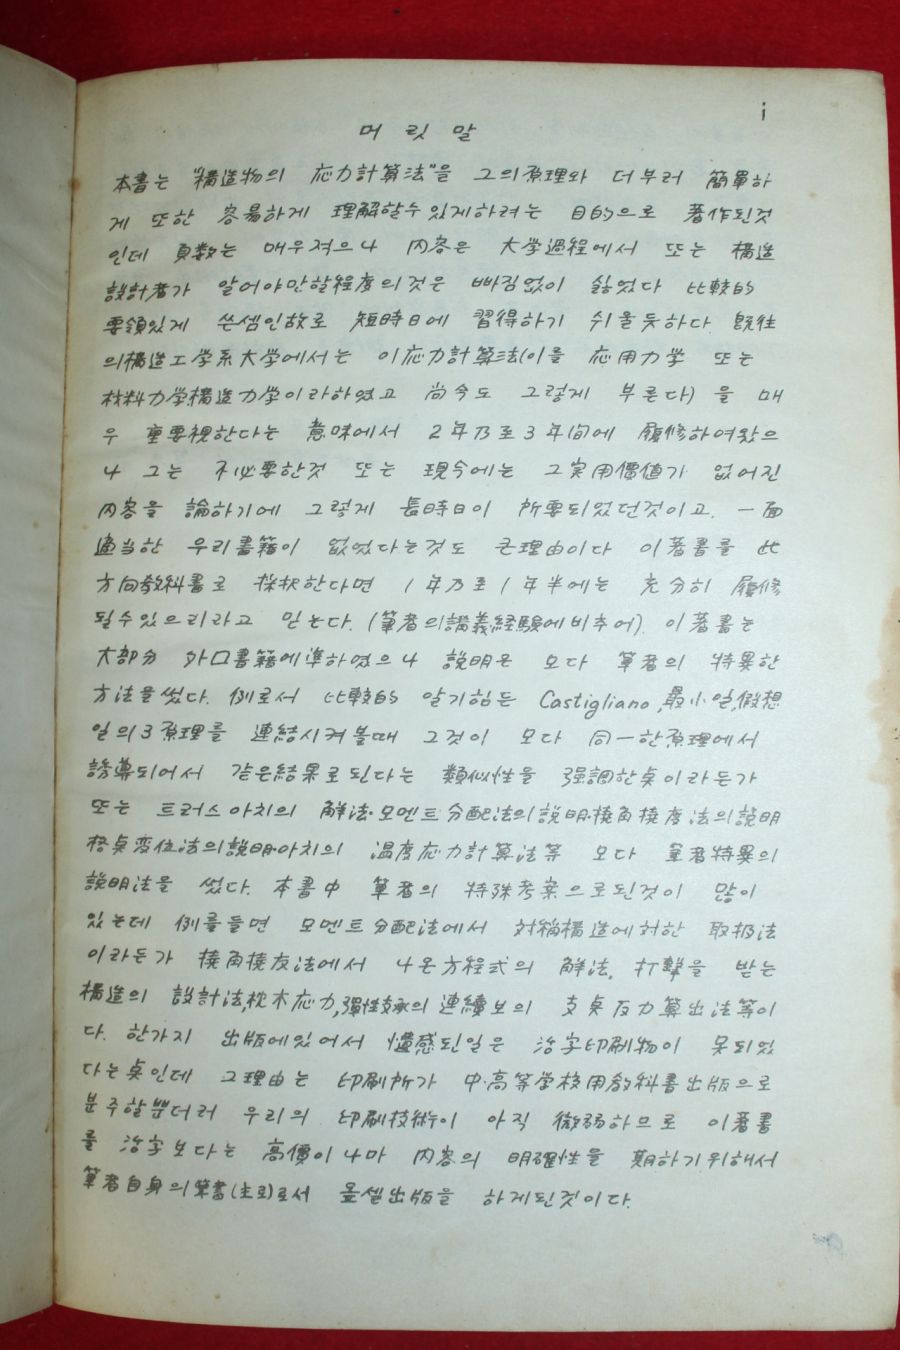 i
머 릿 말
本書는 "構造物의 応力計算法"을 그의原理와 더부러 簡單하
게 또한 容易하게 理解할수있게하려는 目的으로 著作된것
인데 頁数는 매우적으나 内容은 大学過程에서 또는 構造
設計者가 알어야만할程度의것은 빠짐없이 실었다 比較的
要領있게 쓴셈인故로 短時日에 習得하기 쉬울듯하다. 旣往
의構造工学系大学에서는 이応力計算法(이를 応用力学 또는
材料力学構造力学이라하였고 尙今도 그렇게 부른다)을 매
우 重要視한다는 意味에서 2年乃至3年间에 履修하여왔으
나 그는 不必要한것 또는 現今에는 그実用價値가 없어진
内容을 論하기에 그렇게 長時日이 所要되었던것이고. 一面
適当한 우리書籍이 없었다는것도 큰理由이다 이著書를 此
方向敎科書로 採択한다면 1年乃至1年半에는 充分히 履修
될수있으리라고 믿는다. (筆者의講義経験에비추어). 이著書는
大部分 外口書籍에準하였으나 説明은 모다 筆者의 特異한
方法을썼다. 例로서 比較的 알기힘든 Castigliano, 最小일, 假想
일의3原理를 連結시켜볼때 그것이 모다 同一한原理에서
誘導되어서 같은結果로된다는 類似性을 强調한点이라든가
또는 트러스아치의 解法·모멘트分配法의説明·撓角撓度法의説明
格点変位法의説明·아치의 温度応力計算法等 모다 筆者特異의
説明法을 썼다. 本書中 筆者의 特殊考案으로된것이 많이
있는데 例를들면 모멘트分配法에서 対稱構造에対한 取扱法
이라든가 撓角撓度法에서 나온方程式의 解法, 打擊을 받는
構造의 設計法, 枕木応力, 彈性支承의 連續보의 支点反力算出法等이
다. 한가지 出版에있어서 遺感된일은 活字印刷物이 못되었
다는点인데 그理由는 印刷所가 中·高等学校用敎科書出版으로
분주할뿐더러 우리의 印刷技術이 아직 微弱하므로 이著書
를 活字보다는 高價이나마 内容의 明確性을 期하기위해서
筆者自身의筆書(主로)로서 옵셑出版을 하게된것이다.